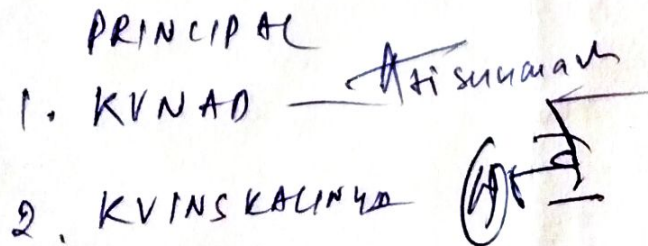 PRINCIPAL
1. KVNAD —
2. KVINSKALINGA